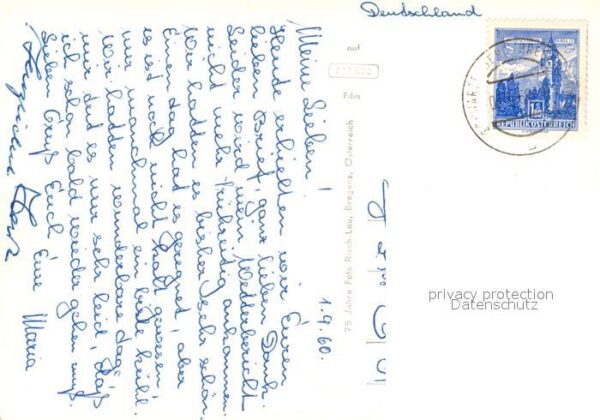 Deutschland
1.9.60.
Meine Lieben!
Heute erhielten wir Euren
lieben Brief, ganz lieben Dank.
Leider wird mein Wetterbericht
nicht mehr frühzeitig ankommen
Wir hatten es bisher sehr schön.
Einen Tag hat es geregnet, aber
es ist noch nicht kalt gewesen
nur manchmal ein bißle kühl.
wir hatten wunderbare Tage
mir tut es nur sehr leid, daß
ich schon bald wieder gehen muß.
Lieben Gruß Euch Eure
Maria
auf
Film
75 Jahre Foto Risch-Lau, Bregenz, Österreich
S
REPUBLIK ÖSTERREICH
privacy protection
Datenschutz